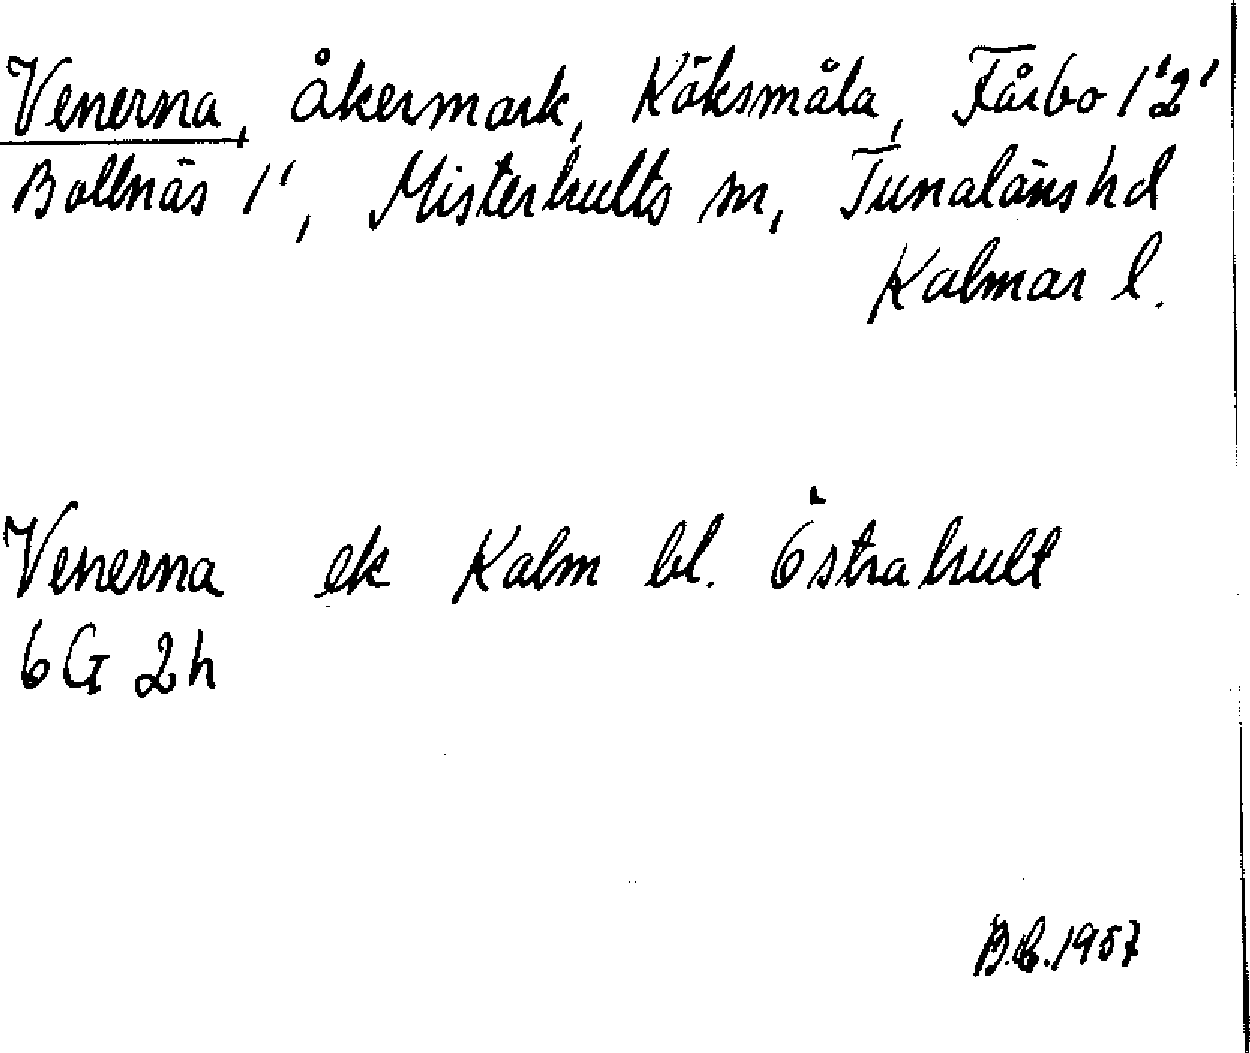 Venerna, åkermark, Köksmåla, Fårbo 1'2'
Bollnäs 1', Misterhults sn, Tunaläns hd
Kalmar l.
Venerna ek Kalm bl. Östrahult
6G 2h
B.B. 1957